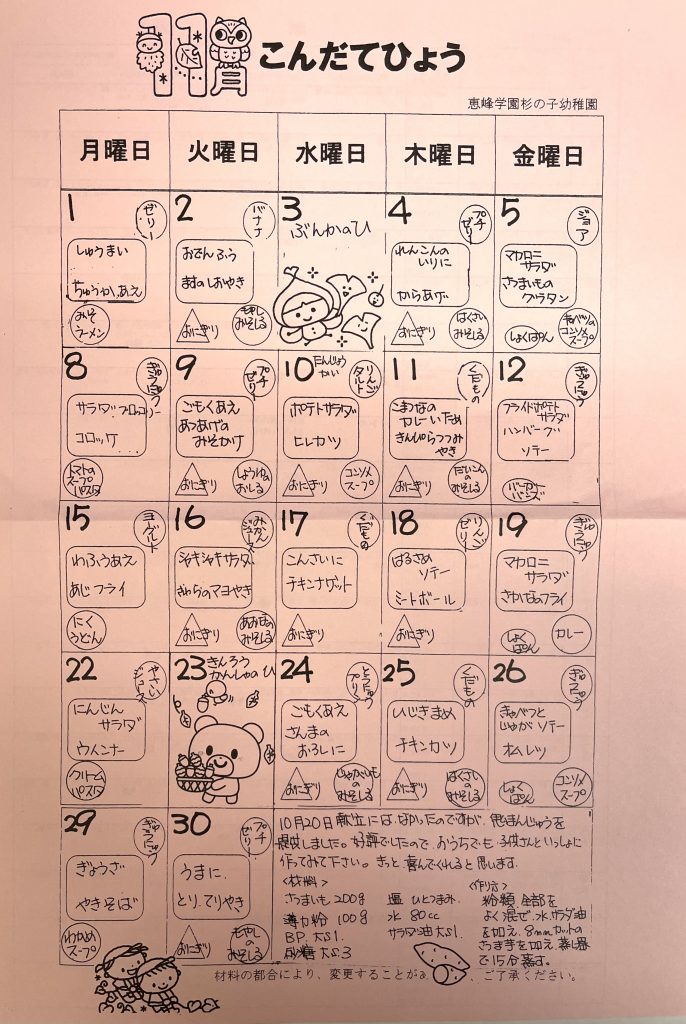 11月 こんだてひょう
恵峰学園杉の子幼稚園
月曜日 火曜日 水曜日 木曜日 金曜日
1
ゼリー
しゅうまい
ちゅうかあえ
みそ
ラーメン
2
バナナ
おでんふう
ますのしおやき
おにぎり
もやし
みそしる
3
ぶんかのひ
4
プチ
ゼリー
れんこんの
いりに
からあげ
おにぎり
はくさい
みそしる
5
ジョア
マカロニ
サラダ
さつまいもの
グラタン
しょくぱん
キャベツの
コンソメ
スープ
8
ぎゅうにゅう
サラダブロッコリー
コロッケ
トマトの
スープ
パスタ
9
プチ
ゼリー
ごもくあえ
あつあげの
みそかけ
おにぎり
しょうゆの
おしる
10
たんじょう
かい
りんご
タルト
ポテトサラダ
ヒレカツ
おにぎり
コンソメ
スープ
11
くだもの
こまつなの
カレーいため
きんぴらつつみ
やき
おにぎり
だいこんの
みそしる
12
ぎゅうにゅう
フライドポテト
サラダ
ハンバーグ
ソテー
バーガー
バンズ
15
ヨーグルト
わふうあえ
あじフライ
にく
うどん
16
みかん
ジュース
シャキシャキサラダ
きゃらのマヨやき
おにぎり
みそしる
17
くだもの
こんさいに
チキンナゲット
おにぎり
18
りんご
ゼリー
はるさめ
ソテー
ミートボール
おにぎり
19
ぎゅうにゅう
マカロニ
サラダ
さかなのフライ
しょく
ぱん
カレー
22
やさい
ジュース
にんじん
サラダ
ウィンナー
クリーム
パスタ
23
きんろう
かんしゃのひ
24
とうにゅう
プリン
ごもくあえ
さんまの
おろしに
おにぎり
じゃがいも
のみそしる
25
くだもの
ひじきまめ
チキンカツ
おにぎり
はくさい
のみそしる
26
ぎゅうにゅう
きゃべつと
じゃがソテー
オムレツ
しょく
ぱん
コンソメ
スープ
29
ぎゅうにゅう
ぎょうざ
やきそば
わかめ
スープ
30
プチ
ゼリー
うまに
とり、てりやき
おにぎり
もやしの
みそしる
10月20日 献立には、なかったのですが、鬼まんじゅうを
提供しました。好評でしたので、おうちでも子供さんといっしょに
作ってみて下さい。きっと喜んでくれると思います。
<材料>
さつまいも 200g
薄力粉 100g
BP 大さじ1
砂糖 大さじ3
塩 ひとつまみ
水 80cc
サラダ油大さじ1.
<作り方>
粉類全部を
よく混ぜ、水、サラダ油
を加え、8mmカットの
さつま芋を加え、蒸し器
で15分蒸す。
材料の都合により、変更することが、ご了承ください。